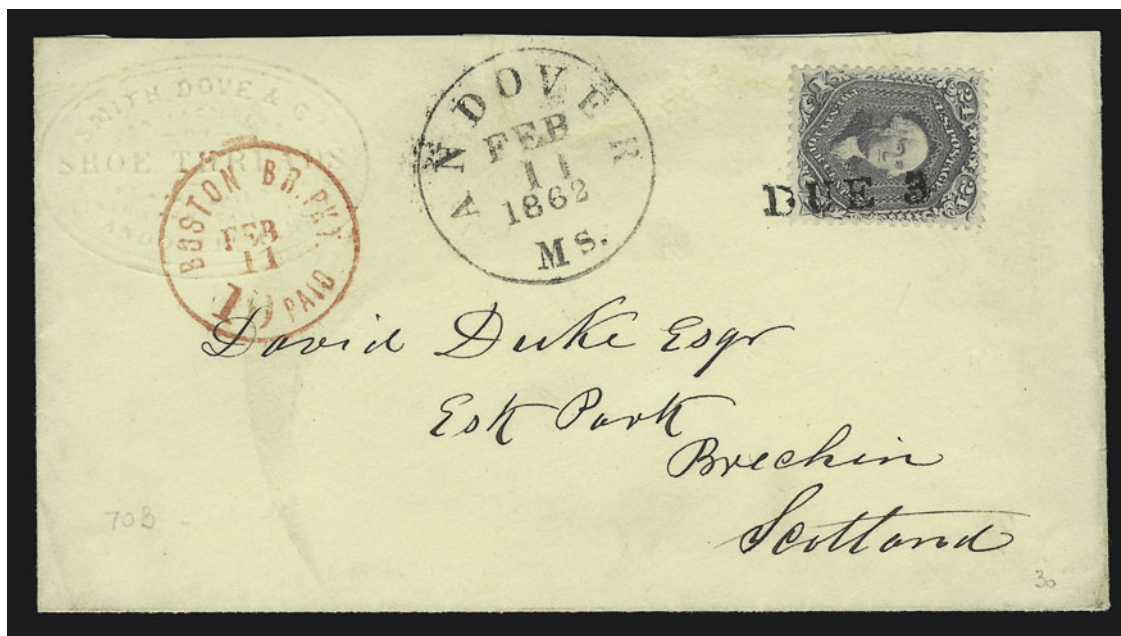 SMITH, DOVE & C
SHOE THREADS
BOSTON BR. PKT.
FEB
11
19 PAID
ANDOVER
FEB
11
1862
Ms.
U.S. POSTAGE
24
24
DUE 3
David Duke Esqr
Esk Park
Brechin
Scotland
70B
30